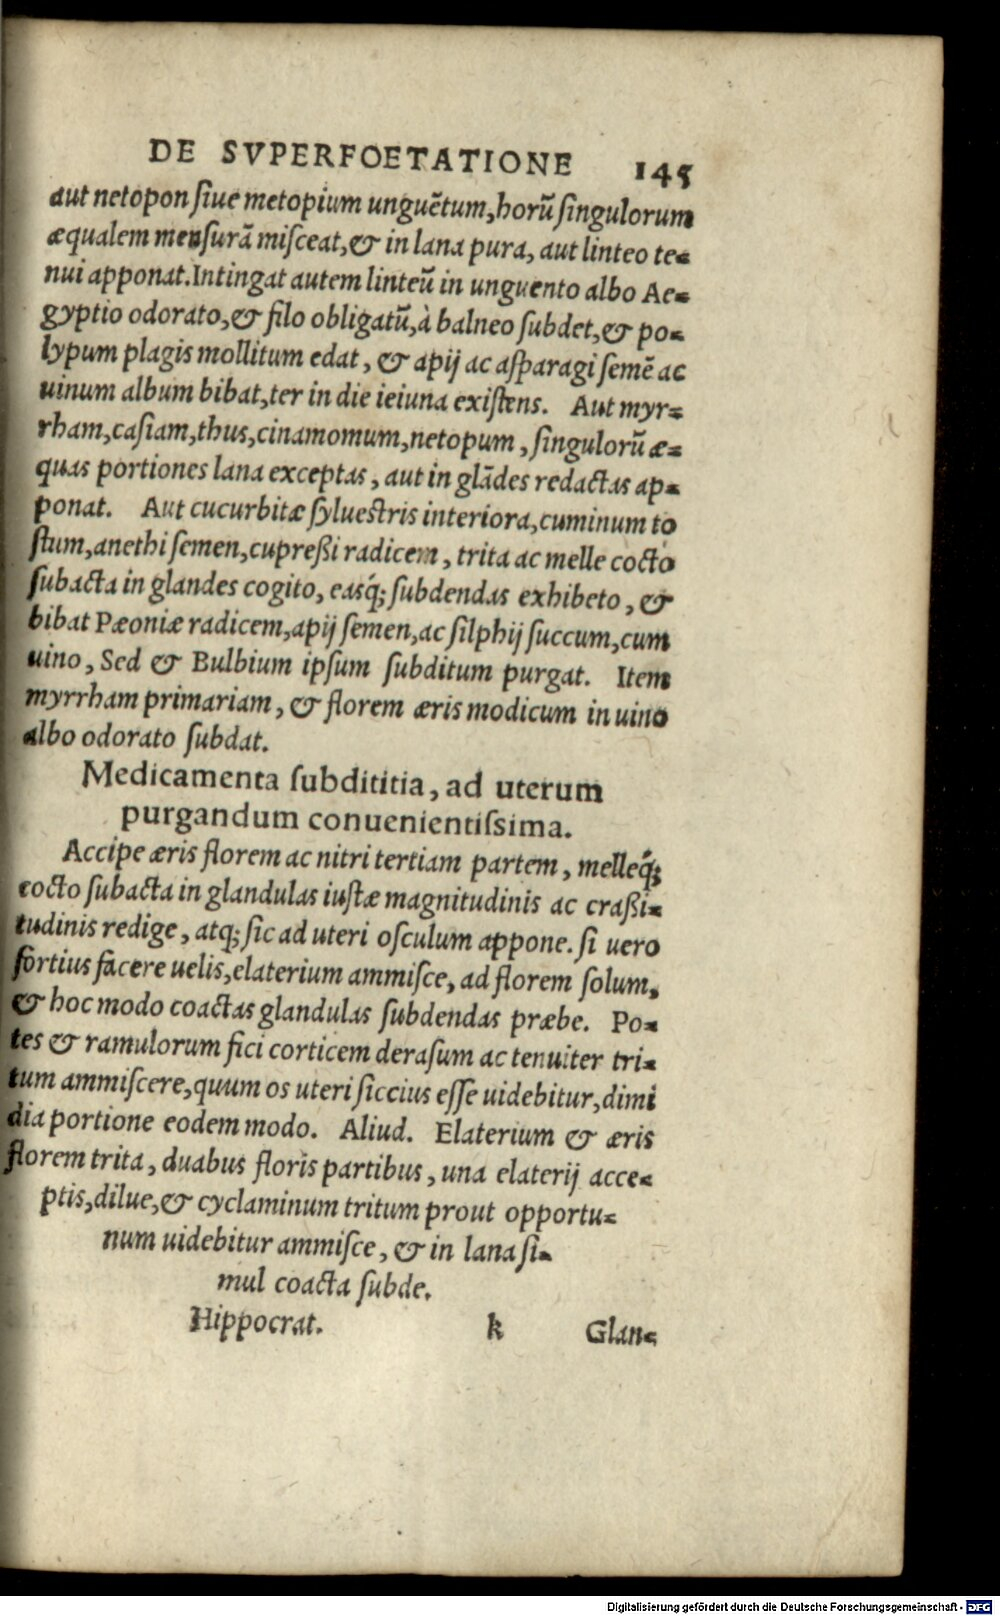 DE SVPERFOETATIONE 145
aut netopon ſiue metopium unguẽtum,horũ ſingulorum
æqualem menſurã miſceat,& in lana pura, aut linteo te-
nui apponat.Intingat autem linteũ in unguento albo Ae-
gyptio odorato,& filo obligatũ,à balneo ſubdet,& po-
lypum plagis mollitum edat, & apij ac aſparagi ſemẽ ac
uinum album bibat,ter in die ieiuna exiſtens. Aut myr-
rham,caſiam,thus,cinamomum,netopum, ſingulorũ æ-
quas portiones lana exceptas, aut in glãdes redactas ap-
ponat. Aut cucurbitæ ſylueſtris interiora,cuminum to
ſtum,anethi ſemen,cupreßi radicem, trita ac melle cocto
ſubacta in glandes cogito, easq́; ſubdendas exhibeto, &
bibat Pæoniæ radicem,apij ſemen,ac ſilphij ſuccum,cum
uino, Sed & Bulbium ipſum ſubditum purgat. Item
myrrham primariam, & florem æris modicum in uino
albo odorato ſubdat.
Medicamenta ſubdititia, ad uterum
purgandum conuenientiſsima.
Accipe æris florem ac nitri tertiam partem, melleq́;
cocto ſubacta in glandulas iuſtæ magnitudinis ac craßi-
tudinis redige, atq; ſic ad uteri oſculum appone. ſi uero
fortius facere uelis,elaterium ammiſce, ad florem ſolum,
& hoc modo coactas glandulas ſubdendas præbe. Po-
tes & ramulorum fici corticem deraſum ac tenuiter tri-
tum ammiſcere,quum os uteri ſiccius eſſe uidebitur,dimi
dia portione eodem modo. Aliud. Elaterium & æris
florem trita, duabus floris partibus, una elaterij acce-
ptis,dilue,& cyclaminum tritum prout opportu-
num uidebitur ammiſce, & in lana ſi-
mul coacta ſubde.
Hippocrat. k Glan-
Digitalisierung gefördert durch die Deutsche Forschungsgemeinschaft - DFG